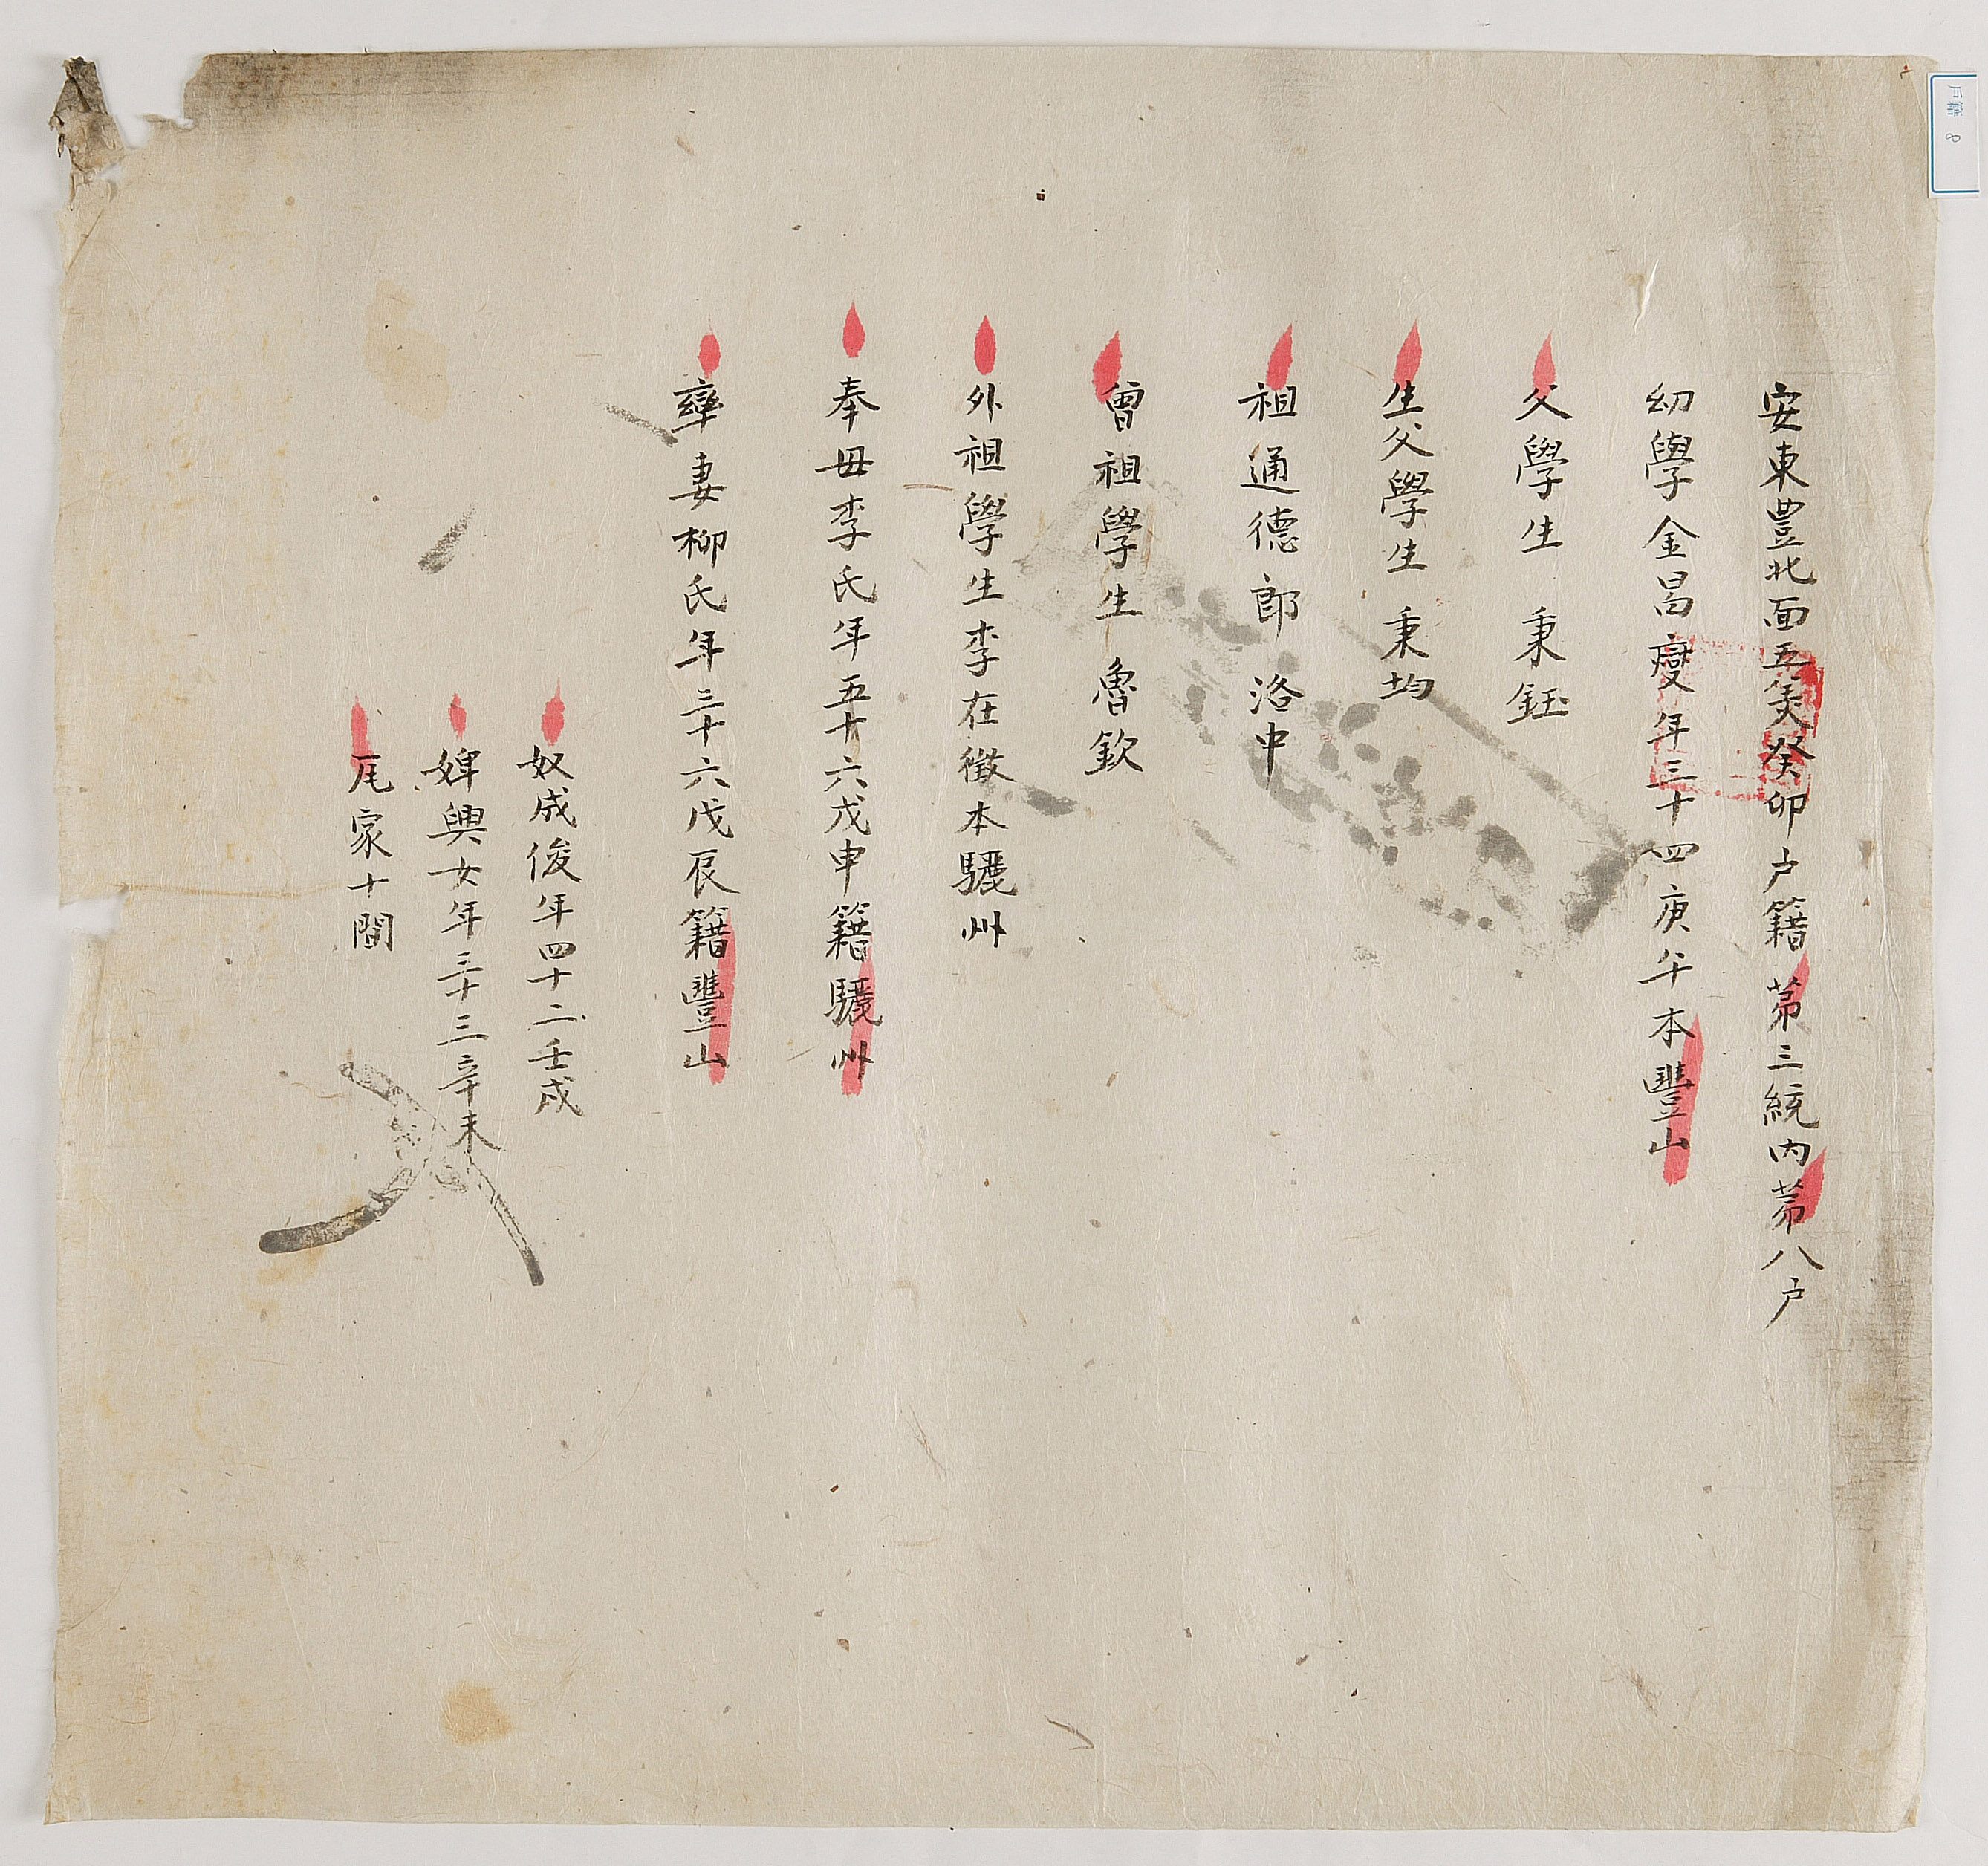 安東豊北面五美癸卯户籍苐三統内苐八户
幼學金昌燮年三十四庚午本豐山
父學生 秉鈺
生父學生 秉均
祖通德郎洛中
曾祖學生 魯欽
外祖學生李在徵本驪州
奉母李氏年五十六戊申籍驪州
率妻柳氏年三十六戊辰籍豐山
奴成俊年四十二壬戌
婢興女年三十三辛未
瓦家十間
户籍 8